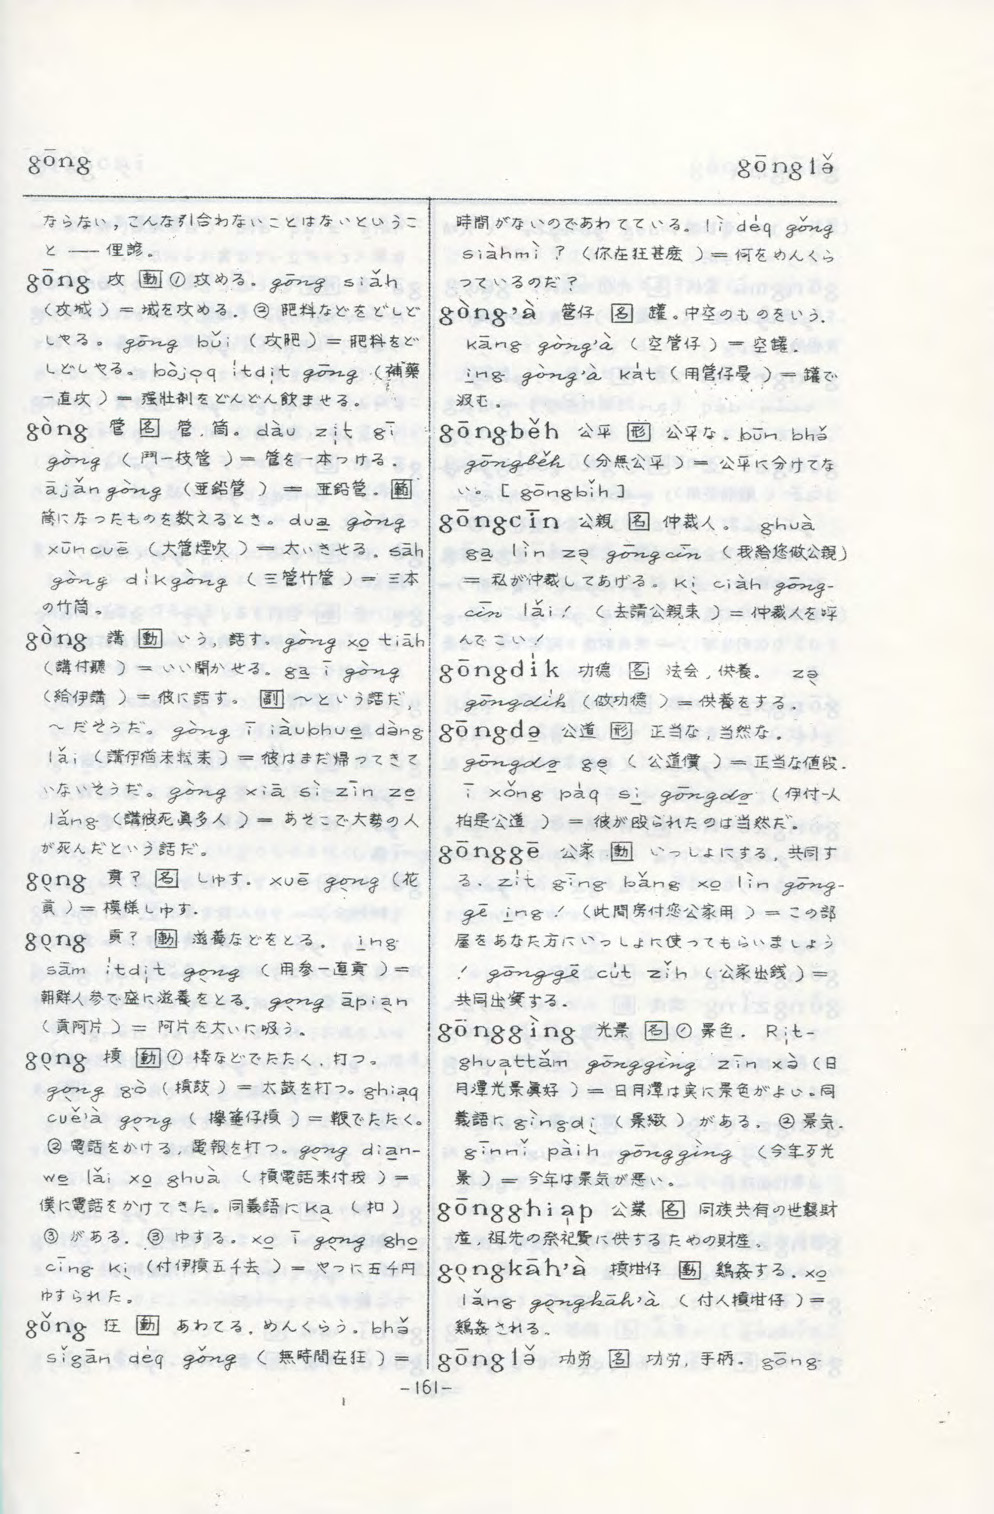 gōng
gōnglə̌
ならない，こんな引合わないことはないというこ
と —— 俚諺。
gōng 攻 動 ① 攻める. gōng siǎh
(攻城) = 城を攻める. ② 肥料などをどしど
しやる。gōng būi (攻肥) = 肥料をど
しどしやる。bòjo̤q i̍tdi̤t gōng (補藥
一直攻) = 強壮剤をどんどん飲ませる。
gòng 管 名 管. 筒。dàu zi̤t gī
gòng (鬥一枝管) = 管を一本つける.
ājǎn gòng (亜鉛管) = 亜鉛管. 量
筒になったものを数えるとき。dua̤ gòng
xūncuē (大管煙吹) = 太いきせる. sāh
gòng díkgòng (三管竹管) = 三本
の竹筒。
gòng 講 動 いう. 話す. gòng xo̤ tiāh
(講付聽) = いい聞かせる. ga̤ ī gòng
(給伊講) = 彼に話す。 副 〜という話だ
〜だそうだ。gòng ī iàubhue̤ dàng
lǎi (講伊猶未転来) = 彼はまだ帰ってきて
いないそうだ。gòng xiā sì zīn ze̤
lǎng (講彼死真多人) = あそこで大勢の人
が死んだという話だ。
go̤ng 貢？ 名 しゅす. xuē go̤ng (花
貢) = 模様しゅす.
go̤ng 貢？ 動 滋養などをとる. i̤ng
sām i̍tdi̤t go̤ng (用参一直貢) =
朝鮮人参で盛に滋養をとる。go̤ng āpia̤n
(貢阿片) = 阿片を大いに吸う.
go̤ng 摃 動 ① 棒などでたたく. 打つ。
go̤ng gò (摃鼓) = 太鼓を打つ。ghia̤q
cuě'à go̤ng (擧箠仔摃) = 鞭でたたく。
② 電話をかける. 電報を打つ。go̤ng dia̤n-
we̤ lǎi xo̤ ghuà (摃電話来付我) =
僕に電話をかけてきた。同義語に ka̤ (扣)
③ がある. ③ ゆする. xo̤ ī go̤ng gho̤
cīng ki̤ (付伊摃五千去) = やつに五千円
ゆすられた.
gǒng 狂 動 あわてる. めんくらう. bhə̌
sǐgān dė̤q gǒng (無時間在狂) =
時間がないのであわてている。lì dė̤q gǒng
siàhmì ? (你在狂甚麼) = 何をめんくら
っているのだ？
gòng'à 管仔 名 罐。中空のものをいう.
kāng gòng'à (空管仔) = 空罐.
i̤ng gòng'à kȧt (用管仔戛) = 罐で
汲む.
gōngběh 公平 形 公平な. būn bhə̌
gōngběh (分無公平) = 公平に分けてな
い. [ gōngbǐh ]
gōngcīn 公親 名 仲裁人. ghuà
ga̤ lìn zə̤ gōngcīn (我給您做公親)
= 私が仲裁してあげる. ki̤ ciàh gōng-
cīn lǎi ! (去請公親来) = 仲裁人を呼
んでこい！
gōngdi̍k 功德 名 法会. 供養. zə̤
gōngdi̍k (做功德) = 供養をする.
gōngdə̤ 公道 形 正当な, 当然な.
gōngdə̤ ge̤ (公道價) = 正当な値段.
ī xǒng pȧq si̤ gōngdə̤ (伊付人
拍是公道) = 彼が殴られたのは当然だ.
gōnggē 公家 動 いっしょにする. 共同す
る. zi̍t gīng bǎng xo̤ lìn gōng-
gē i̤ng ! (此間房付您公家用) = この部
屋をあなた方にいっしょに使ってもらいましょう
! gōnggē cu̍t zǐh (公家出銭) =
共同出資する.
gōnggìng 光景 名 ① 景色. Ri̤t-
ghua̤ttǎm gōnggìng zīn xə̀ (日
月潭光景真好) = 日月潭は実に景色がよい. 同
義語に gìngdi̤ (景緻) がある. ② 景気.
gīnnǐ pàih gōnggìng (今年歹光
景) = 今年は景気が悪い.
gōngghia̤p 公業 名 同族共有の世襲財
産. 祖先の祭祀費に供するための財産.
go̤ngkāh'à 摃坩仔 動 鶏姦する. xo̤
lǎng go̤ngkāh'à (付人摃坩仔) =
鶏姦される.
gōnglə̌ 功労 名 功労, 手柄. gōng-
-161-